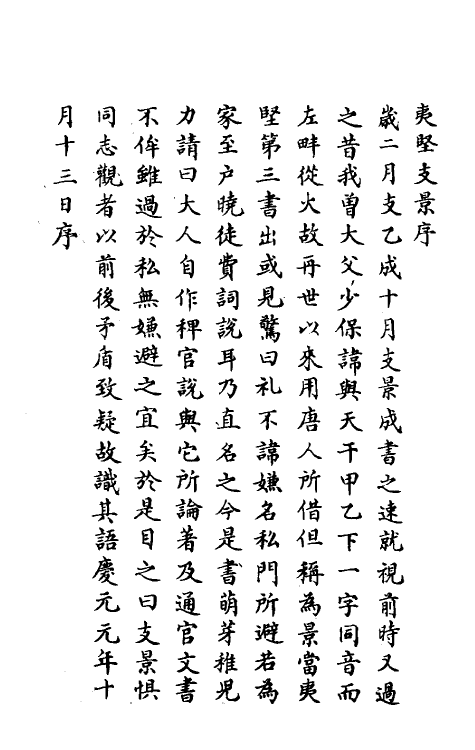 夷堅支景序
歲二月支乙成十月支景成書之速就視前時又過
之昔我曾大父少保諱與天干甲乙下一字同音而
左畔從火故再世以來用唐人所借但稱為景當夷
堅第三書出或見驚曰礼不諱嫌名私門所避若為
家至户曉徒費詞說耳乃直名之今是書萌芽稚兒
力請曰大人自作稗官說與它所論著及通官文書
不侔雖過於私無嫌避之宜矣於是目之曰支景惧
同志觀者以前後矛盾致疑故識其語慶元元年十
月十三日序